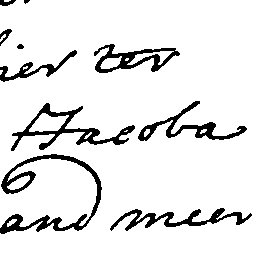 hier ter
Jacoba
and meer